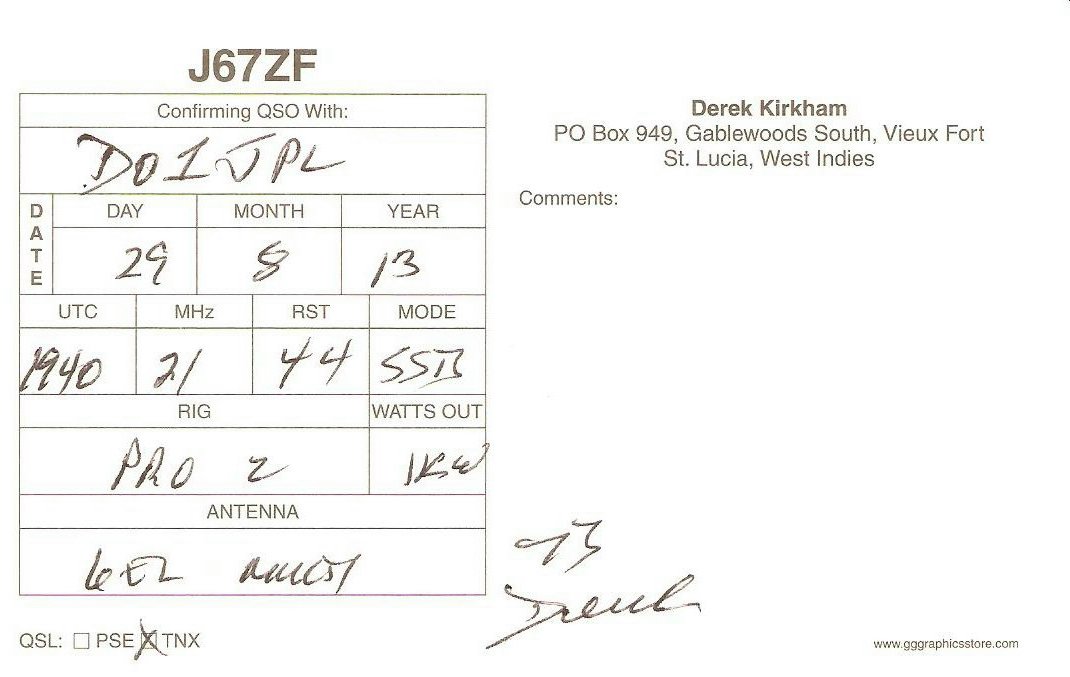 J67ZF
Confirming QSO With:
DO1JPL
DATE
DAY MONTH YEAR
29 8 13
UTC MHz RST MODE
1940 21 44 SSB
RIG WATTS OUT
PRO 2 1KW
ANTENNA
6EL
QSL: PSE X TNX
Derek Kirkham
PO Box 949, Gablewoods South, Vieux Fort
St. Lucia, West Indies
Comments:
73
Derek
www.gggraphicsstore.com